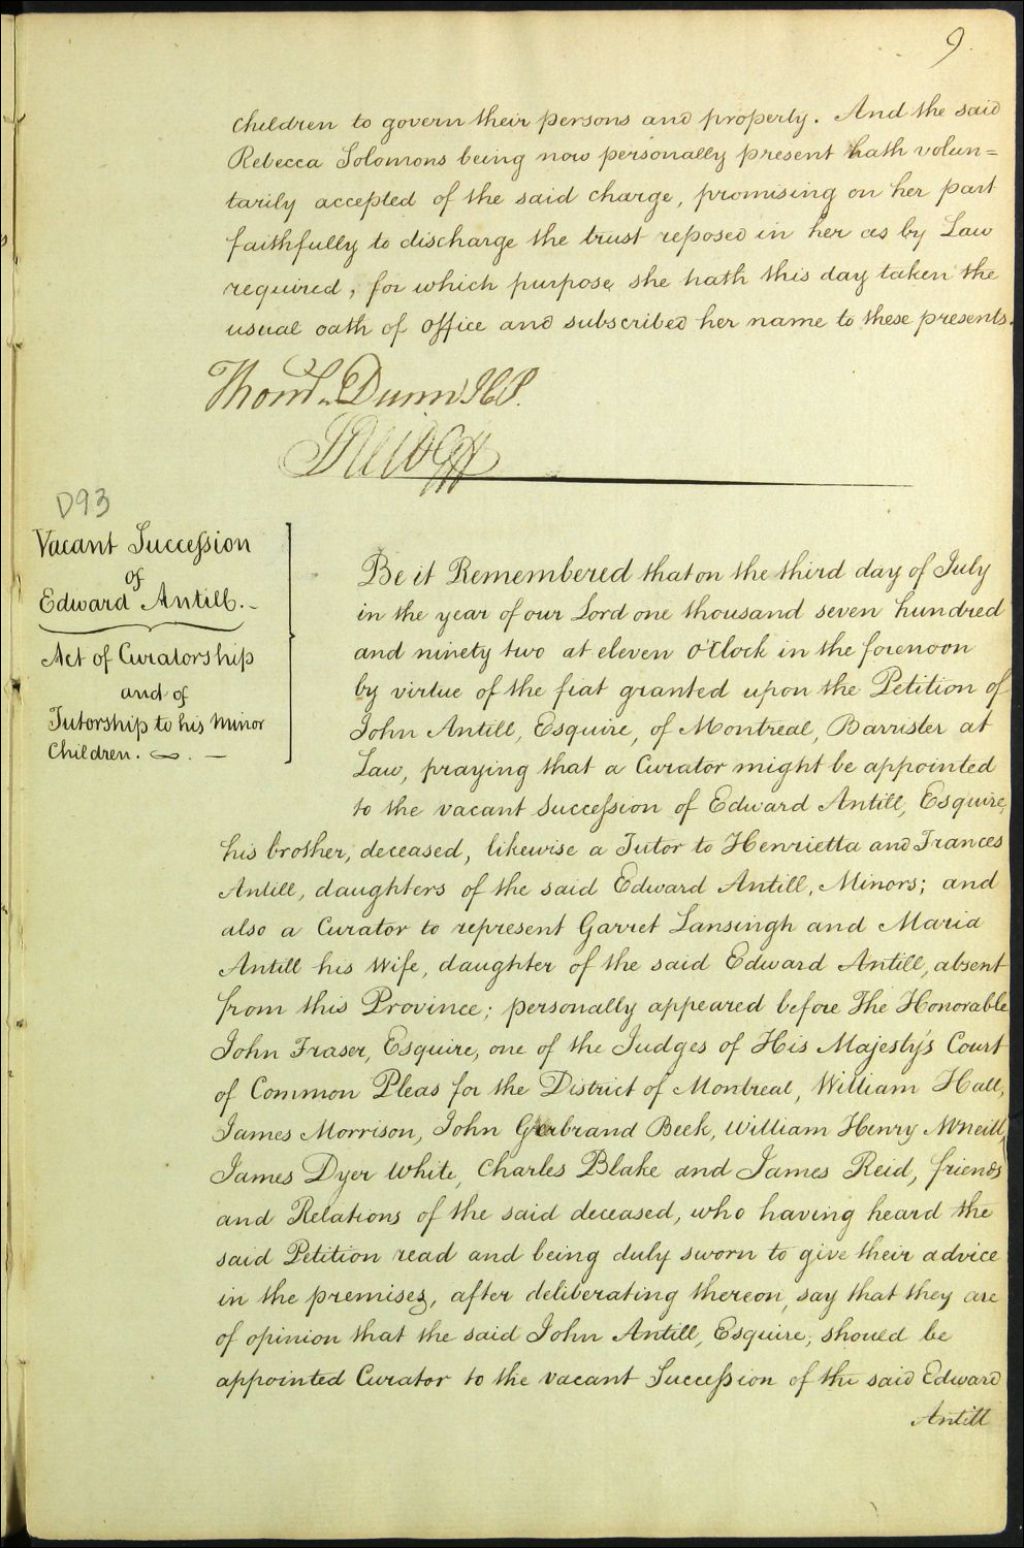 9.
children to govern their persons and property. And the said
Rebecca Solomons being now personally present hath volun=
tarily accepted of the said charge, promising on her part
faithfully to discharge the trust reposed in her as by Law
required, for which purpose she hath this day taken the
usual oath of office and subscribed her name to these presents.
Thoms. Dunn
D93
Vacant Succession
of
Edward Antill.-
Act of Curatorship
and of
Tutorship to his minor
Children. -
Be it Remembered that on the third day of July
in the year of our Lord one thousand seven hundred
and ninety two at eleven o'Clock in the forenoon
by virtue of the fiat granted upon the Petition of
John Antill, Esquire, of Montreal, Barrister at
Law, praying that a Curator might be appointed
to the vacant Succession of Edward Antill, Esquire,
his brother, deceased, likewise a Tutor to Henrietta and Frances
Antill, daughters of the said Edward Antill, Minors; and
also a Curator to represent Garret Lansingh and Maria
Antill his Wife, daughter of the said Edward Antill, absent
from this Province; personally appeared before The Honorable
John Fraser, Esquire, one of the Judges of His Majesty's Court
of Common Pleas for the District of Montreal, William Hall,
James Morrison, John Gerbrand Beek, William Henry McNeill,
James Dyer White, Charles Blake and James Reid, friends
and Relations of the said deceased, who having heard the
said Petition read and being duly sworn to give their advice
in the premises, after deliberating thereon, say that they are
of opinion that the said John Antill, Esquire, should be
appointed Curator to the vacant Succession of the said Edward
Antill